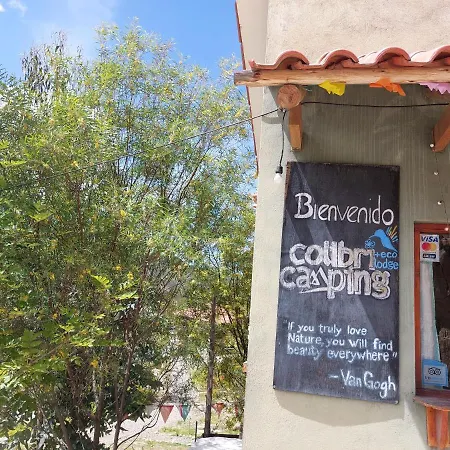 Bienvenido
colibri
+eco
lodge
camping
"If you truly love
Nature, you will find
beauty everywhere"
- Van Gogh
VISA